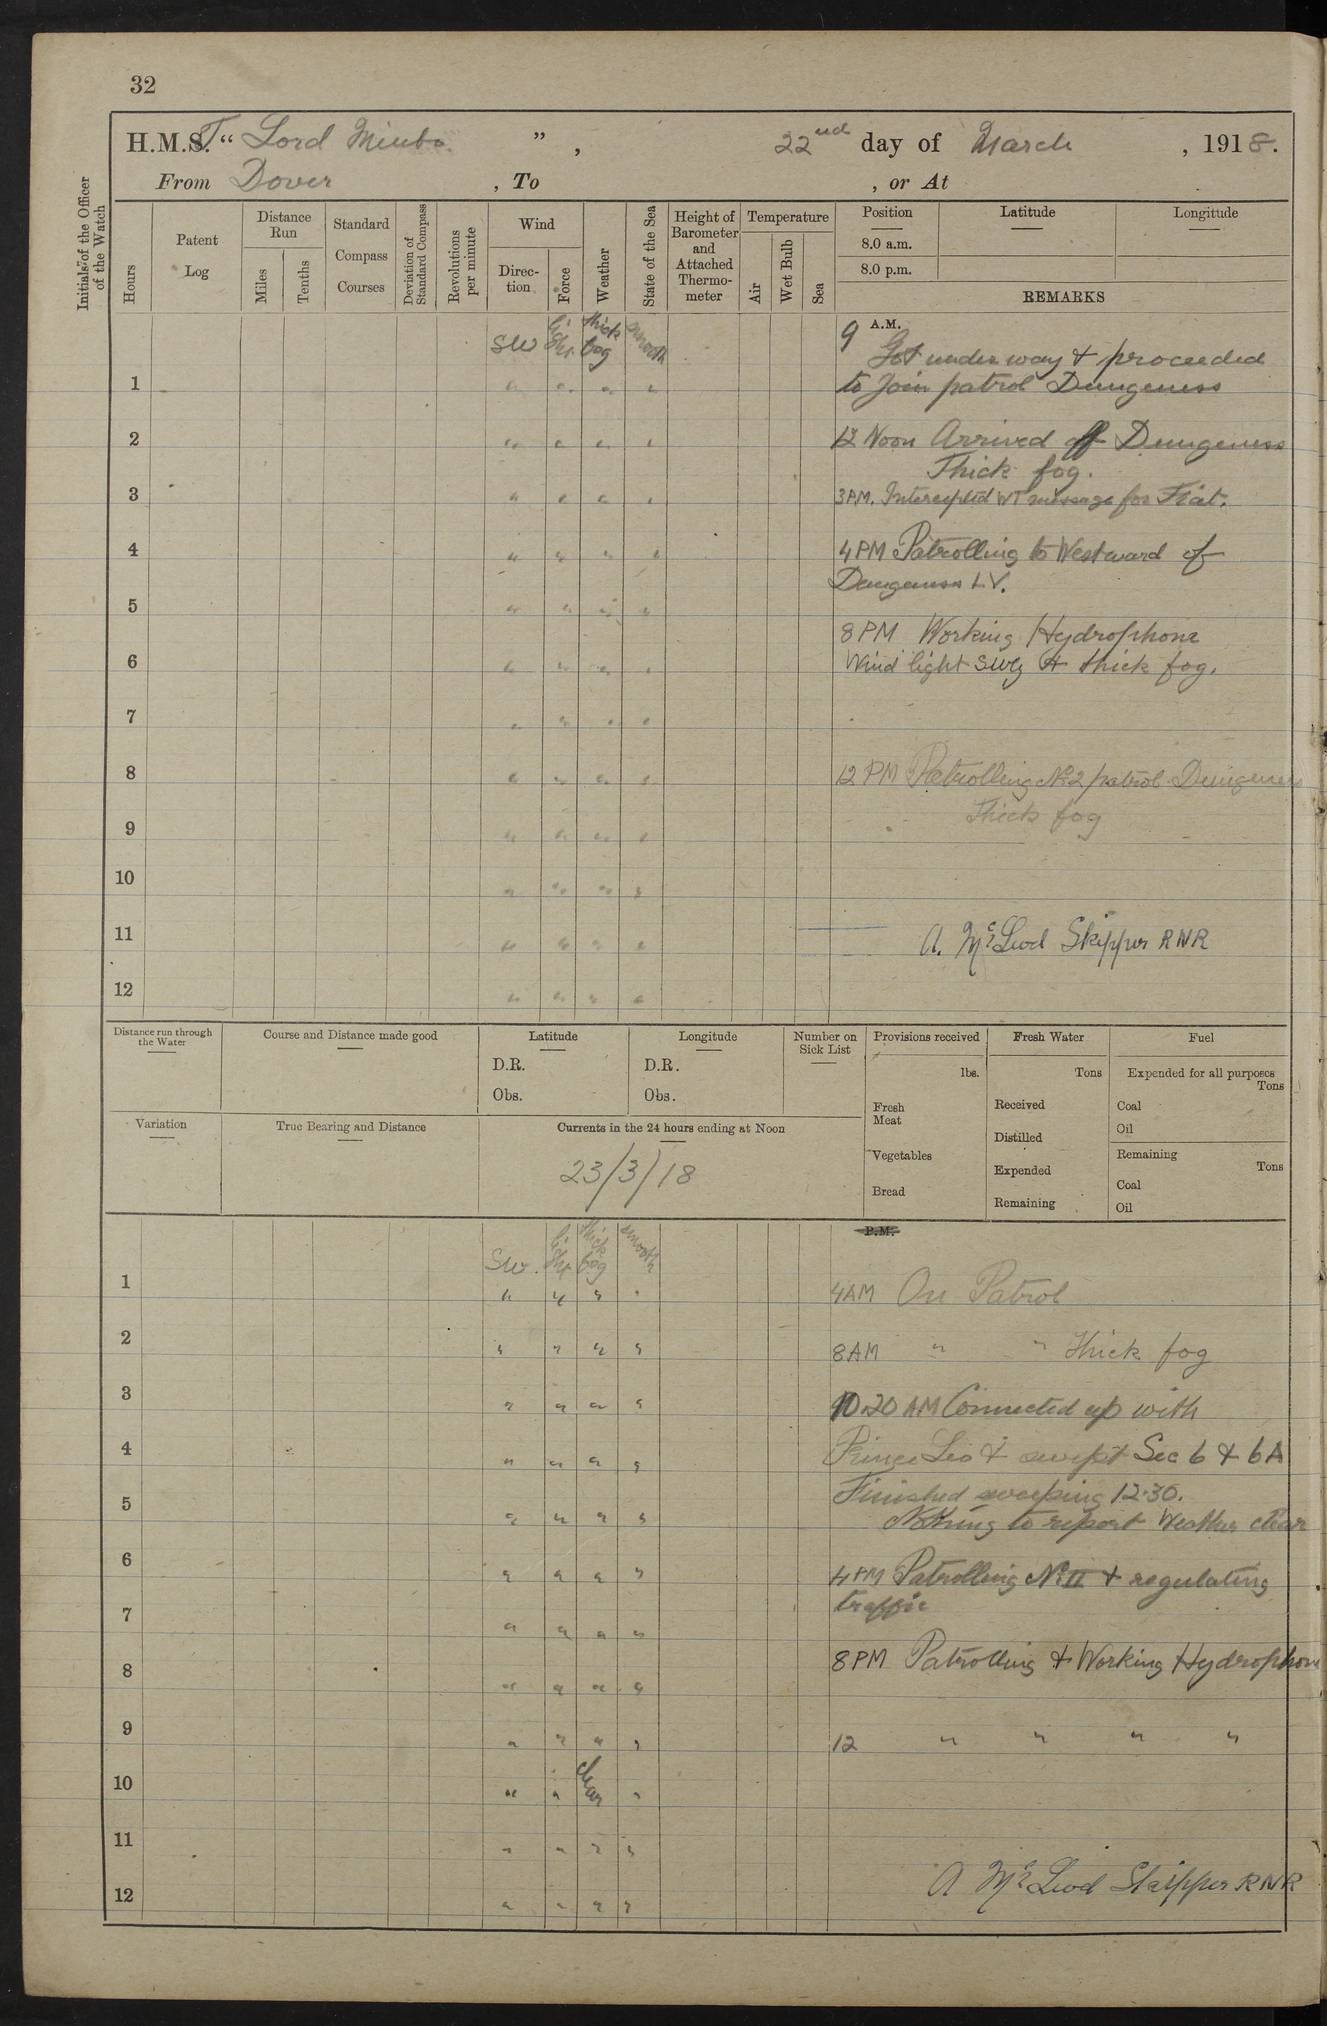 32
H.M.S.T. " Lord Minto " , 22nd day of March , 1918.
From Dover , To , or At
Initials of the Officer of the Watch
Hours
Patent Log
Distance Run
Miles
Tenths
Standard Compass Courses
Deviation of Standard Compass
Revolutions per minute
Wind
Direc-tion
Force
Weather
State of the Sea
Height of Barometer and Attached Thermo-meter
Temperature
Air
Wet Bulb
Sea
Position
Latitude
Longitude
8.0 a.m.
8.0 p.m.
REMARKS
A.M.
SW light thick fog smooth
9 Got under way & proceeded
1 " " " "
to Join patrol Dungeness
2 " " " "
12 Noon Arrived off Dungeness
Thick fog.
3 " " " "
3 P.M. Intercepted WT message for Fiat.
4 " " " "
4 PM Patrolling to Westward of
Dungeness L.V.
5 " " " "
8 PM Working Hydrophone
6 " " " "
Wind light SWly & thick fog.
7 " " " "
8 " " " "
12 PM Patrolling No 2 patrol Dungeness
Thick fog
9 " " " "
10 " " " "
11 " " " "
A. McLeod Skipper RNR
12 " " " "
Distance run through the Water
Course and Distance made good
Latitude
D.R.
Obs.
Longitude
D.R.
Obs.
Number on Sick List
Provisions received
lbs.
Fresh Meat
Vegetables
Bread
Fresh Water
Tons
Received
Distilled
Expended
Remaining
Fuel
Expended for all purposes
Tons
Coal
Oil
Remaining
Tons
Coal
Oil
Variation
True Bearing and Distance
Currents in the 24 hours ending at Noon
23/3/18
P.M.
SW. light thick fog smooth
1 " " " "
4 AM On Patrol
2 " " " "
8 AM " " Thick fog
3 " " " "
10.20 AM Connected up with
4 " " " "
Prince Leo & swept Sec 6 & 6A
Finished sweeping 12.30.
5 " " " "
Nothing to report Weather clear
6 " " " "
4 PM Patrolling No II & regulating
traffic
7 " " " "
8 PM Patrolling & Working Hydrophone
8 " " " "
9 " " " "
12 " " " "
10 " " clear "
11 " " " "
A McLeod Skipper RNR
12 " " " "